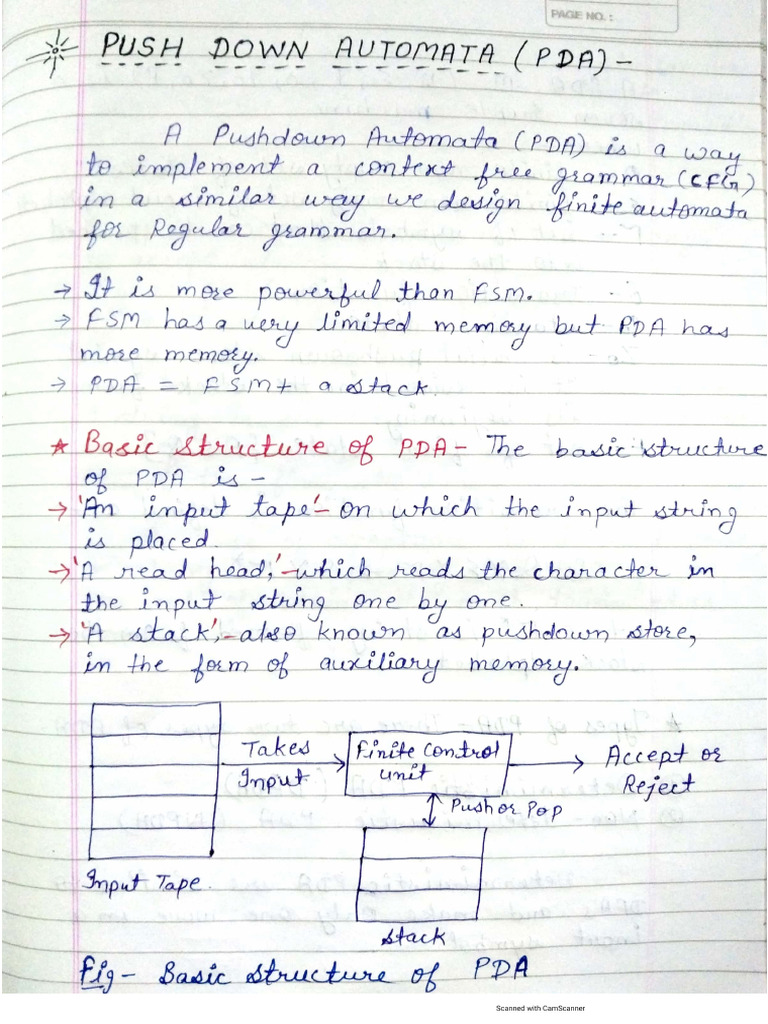 PAGE NO. :
PUSH DOWN AUTOMATA (PDA) -
A Pushdown Automata (PDA) is a way
to implement a context free grammar (CFG)
in a similar way we design finite automata
for Regular grammar.
→ It is more powerful than FSM.
→ FSM has a very limited memory but PDA has
more memory.
→ PDA = FSM + a stack.
* Basic structure of PDA - The basic structure
of PDA is -
→ 'An input tape' - on which the input string
is placed.
→ 'A read head,' - which reads the character in
the input string one by one.
→ 'A stack', - also known as pushdown store,
in the form of auxiliary memory.
Takes
Input
Finite control
unit
Accept or
Reject
Push or Pop
Input Tape.
stack
Fig - Basic structure of PDA
Scanned with CamScanner